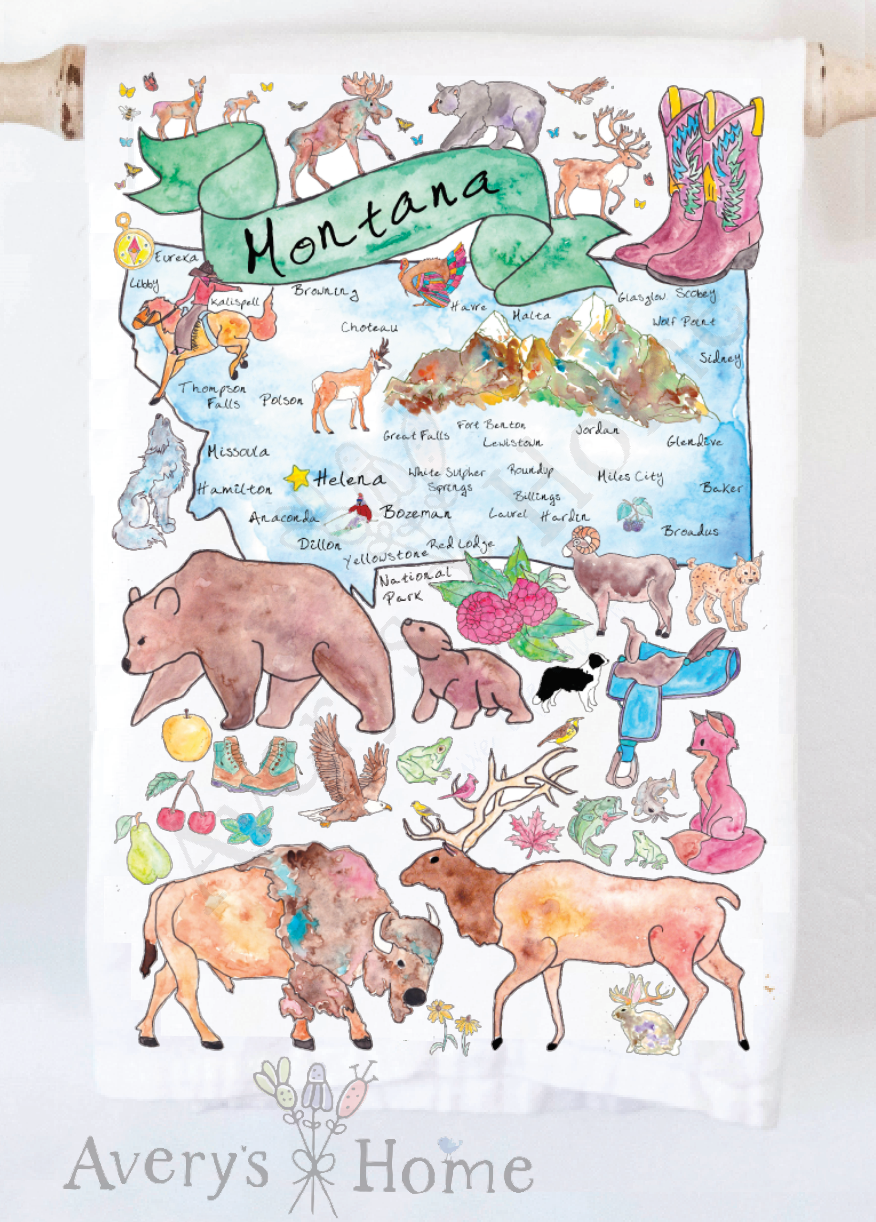 Montana
Eureka
Libby
Kalispell
Browning
Havre
Malta
Glasglow
Scobey
Choteau
Wolf Point
Sidney
Thompson
Falls
Polson
Great Falls
Fort Benton
Lewistown
Jordan
Glendive
Missoula
Hamilton
Helena
White Sulpher
Springs
Roundup
Billings
Miles City
Baker
Anaconda
Bozeman
Laurel
Hardin
Broadus
Dillon
Red Lodge
Yellowstone
National
Park
Avery's Home